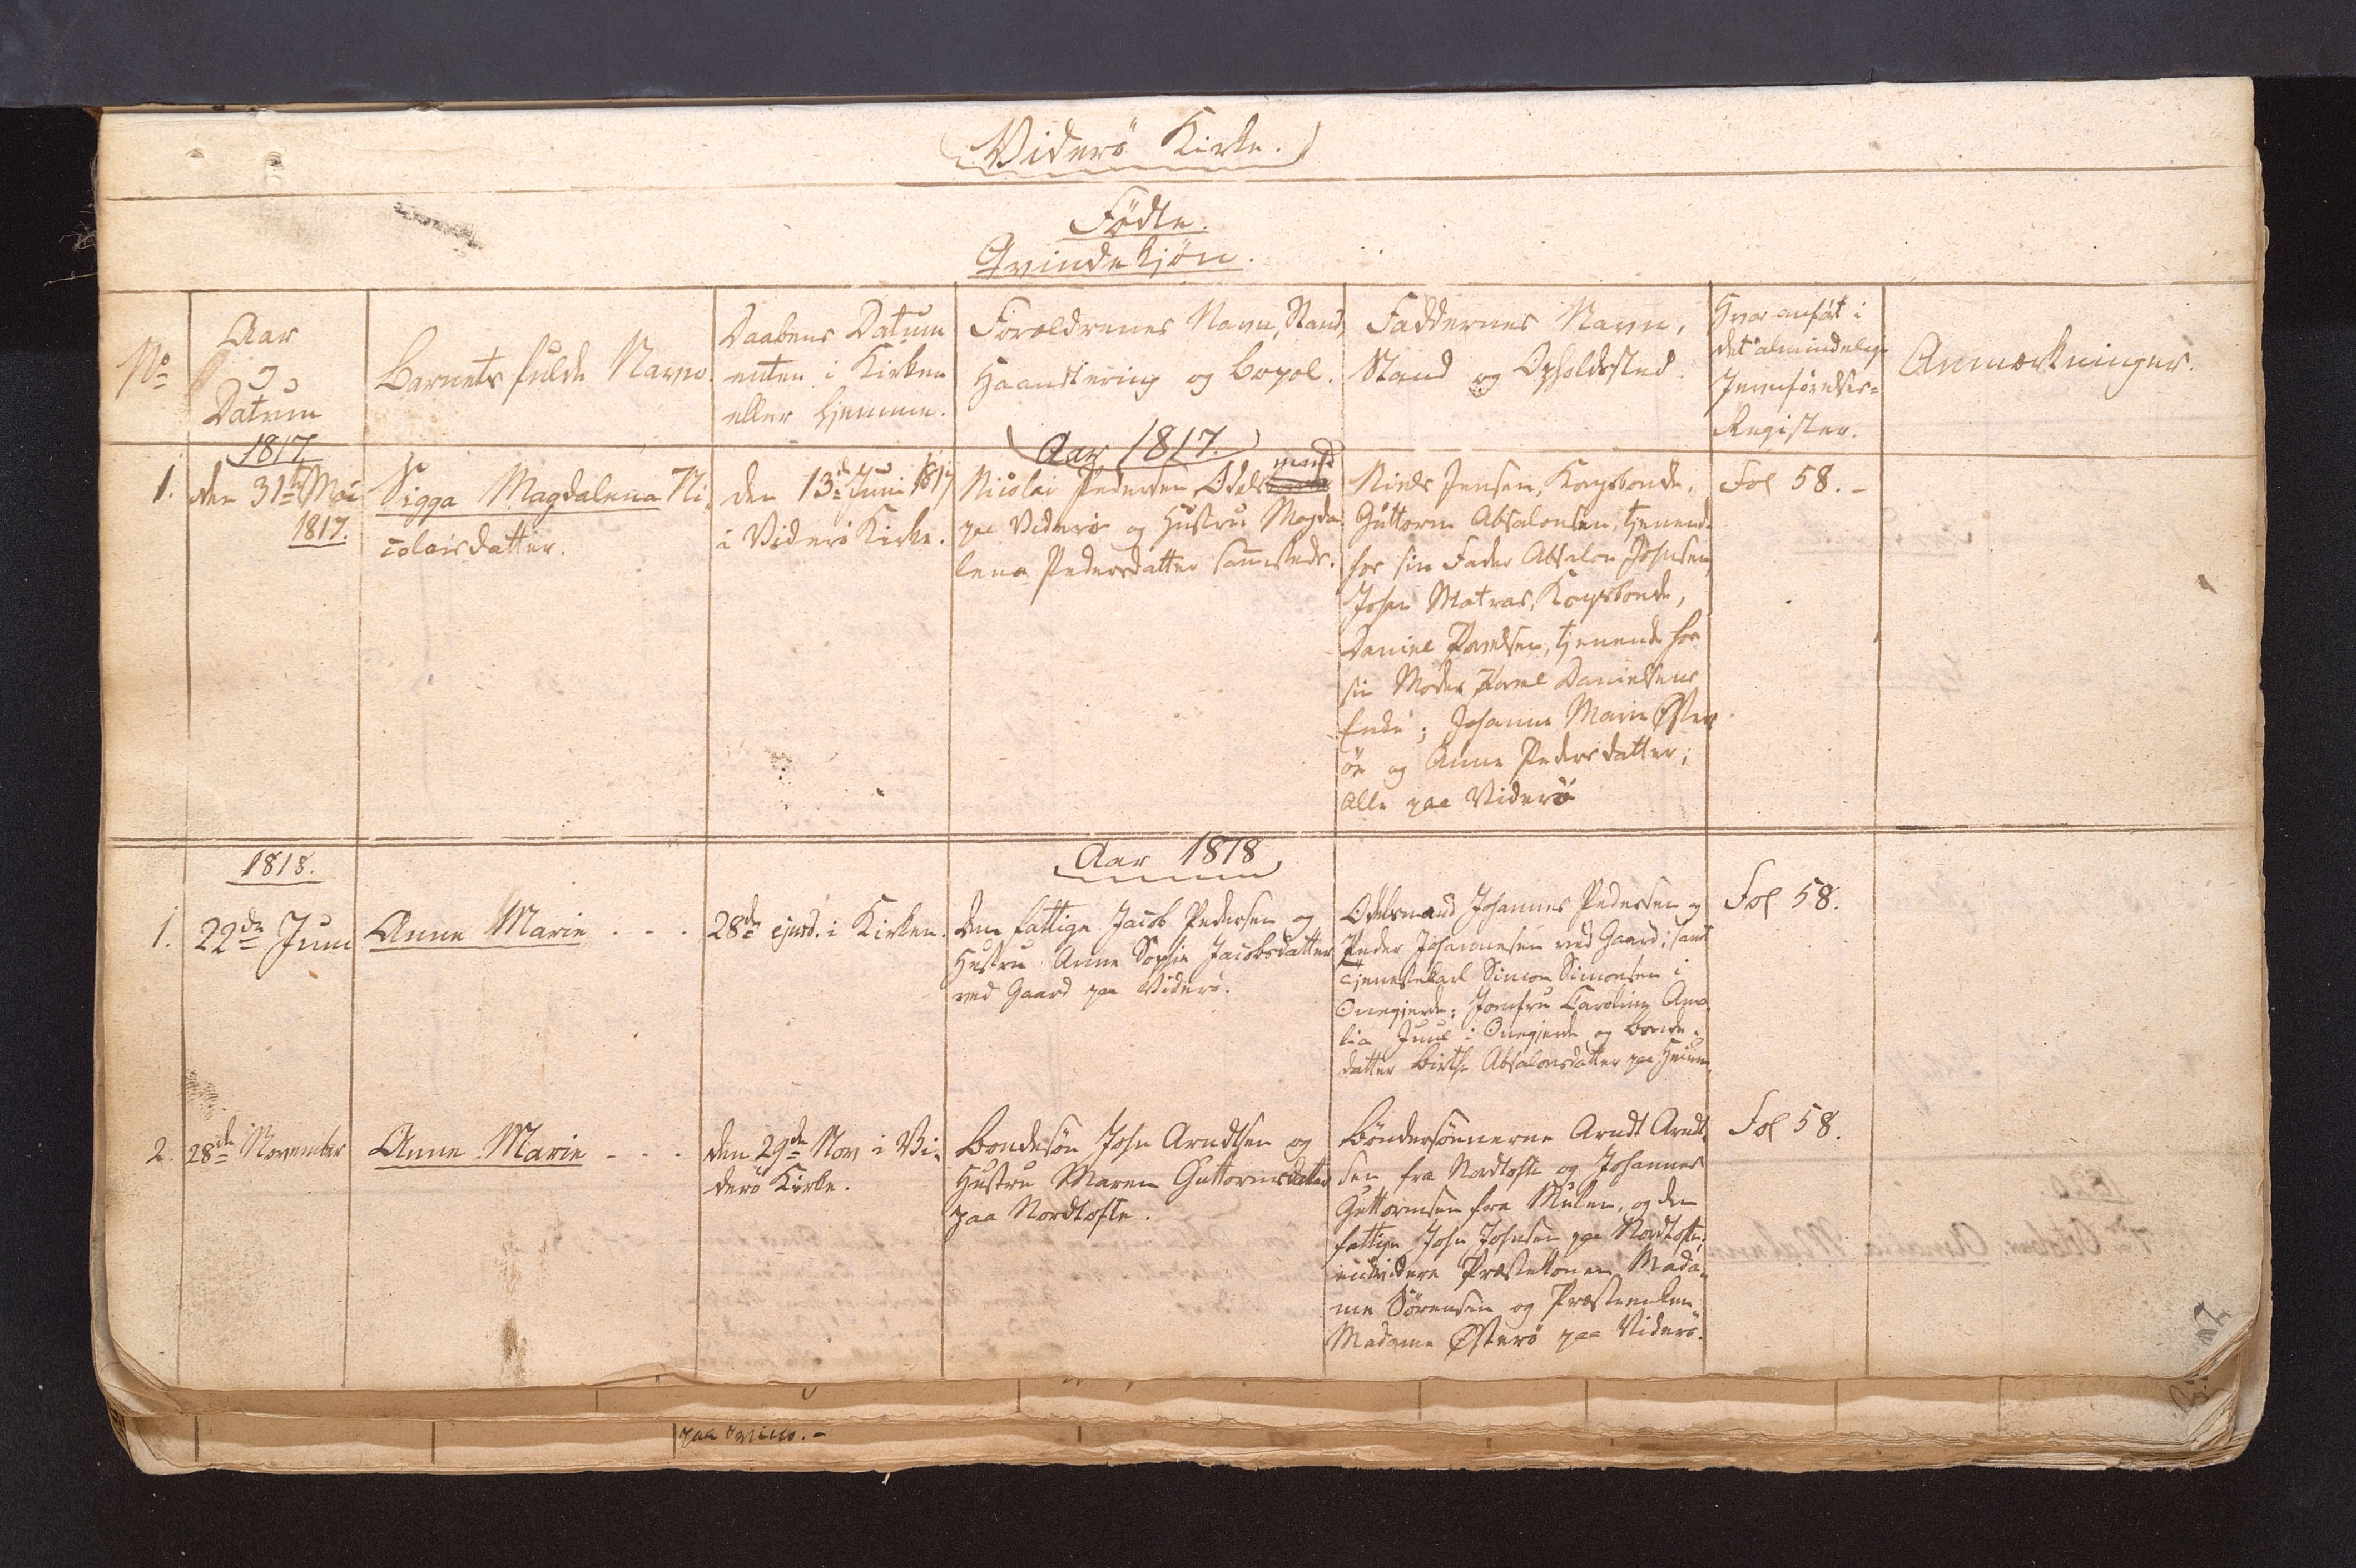 Viderö Kirke.
Födte.
Qvindekjön.
No
Aar
og
Datum
Barnets fulde Navn.
Daabens Datum
enten i Kirken
eller hjemme.
Forældrenes Navn, Stand,
Haandtering og Bopæl.
Faddernes Navn,
Stand og Opholdssted.
Hvor anfört i
det almindelige
Jevnförelses=
Register.
Anmærkninger.
1817
Aar 1817.
1.
den 31te Mai
1817.
Sigga Magdalena Ni-
colaisdatter.
den 13de Juni 1817
i Viderö Kirke.
Nicolai Pedersen, Odelsmand
paa Viderö og Hustru Magda
lena Pedersdatter sammesteds.
Niels Jensen, Kongsbonde,
Guttorm Absalonsen, tjenende
hos sin Fader Absalon Johnsen,
John Matras, Kongsbonde,
Daniel Povelsen, tjenende hos
sin Moder Povel Danielsens
Enke; Johanne Marie Öster
öe og Anne Pedersdatter;
Alle paa Viderö
Fol 58.-
1818.
Aar 1818
1.
22de Juni
Anne Marie - - -
28de ejusd. i Kirken.
Den fattige Jacob Pedersen og
Hustru Anne Sophie Jacobsdatter
ved Gaard paa Viderö.
Odelsmand Johannes Pedersen og
Peder Johannesen ved Gaard; samt
Tjenestekarl Simon Simonsen i
Onegjerde; Jomfru Caroline Ama
lia Juul i Onegjerde og Bonde-
datter Birthe Absalonsdatter paa
Fol 58.
2.
28de November
Anne Marie - - -
den 29de Nov i Vi-
derö Kirke.
Bondesön John Arndtsen og
Hustru Maren Guttormsdatter
paa Nordtofte.
Böndersönnerne Arndt Arndt-
sen fra Nordtofte og Johannes
Guttormsen fra Mulen, og den
fattige John Johnsen paa Nordtofte;
endvidere Præstekonen Mada-
me Sörensen og Præsteenken
Madame Österö paa Viderö.
Fol 58.